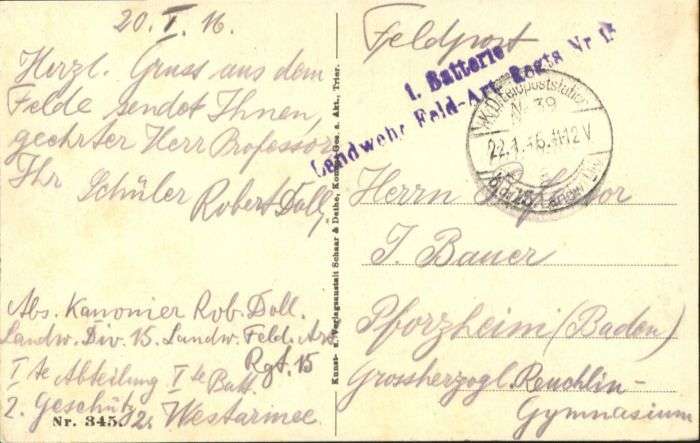 20. I. 16.
Herzl. Gruss aus dem
Felde sendet Ihnen,
geehrter Herr Professor
Ihr Schüler
Robert Doll.
Abs. Kanonier Rob. Doll.
Landw. Div. 15. Landw. Feld. Art.
Rgt. 15
Ite Abteilung Ite Batt.
2. Geschütz Westarmee
Nr. 345
Kunst- u. Verlagsanstalt Schaar & Dathe, Komm.-Ges. a. Akt., Trier.
Feldpost
1. Batterie
Landwehr Feld-Art. Regts Nr 15
K.D. Feldpoststation
Nr 39
22.1.16. 11-12 V
Herrn Professor
J. Bauer
Pforzheim (Baden)
Grossherzogl. Reuchlin-
Gymnasium